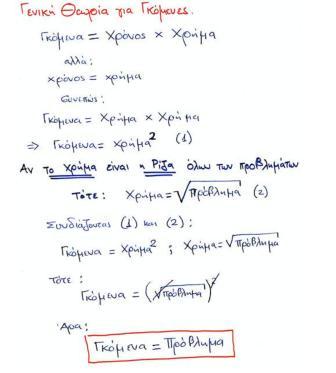 Γενική Θεωρία για Γκόμενες.
Γκόμενα = Χρόνος × Χρήμα
αλλά:
χρόνος = χρήμα
Συνεπώς:
Γκόμενα = Χρήμα × Χρήμα
⇒ Γκόμενα = Χρήμα² (1)
Αν το Χρήμα είναι η Ρίζα όλων των προβλημάτων
τότε: Χρήμα = √Πρόβλημα (2)
Συνδιάζοντας (1) και (2):
Γκόμενα = Χρήμα² ; Χρήμα = √Πρόβλημα
τότε:
Γκόμενα = (√Πρόβλημα)²
Άρα:
Γκόμενα = Πρόβλημα